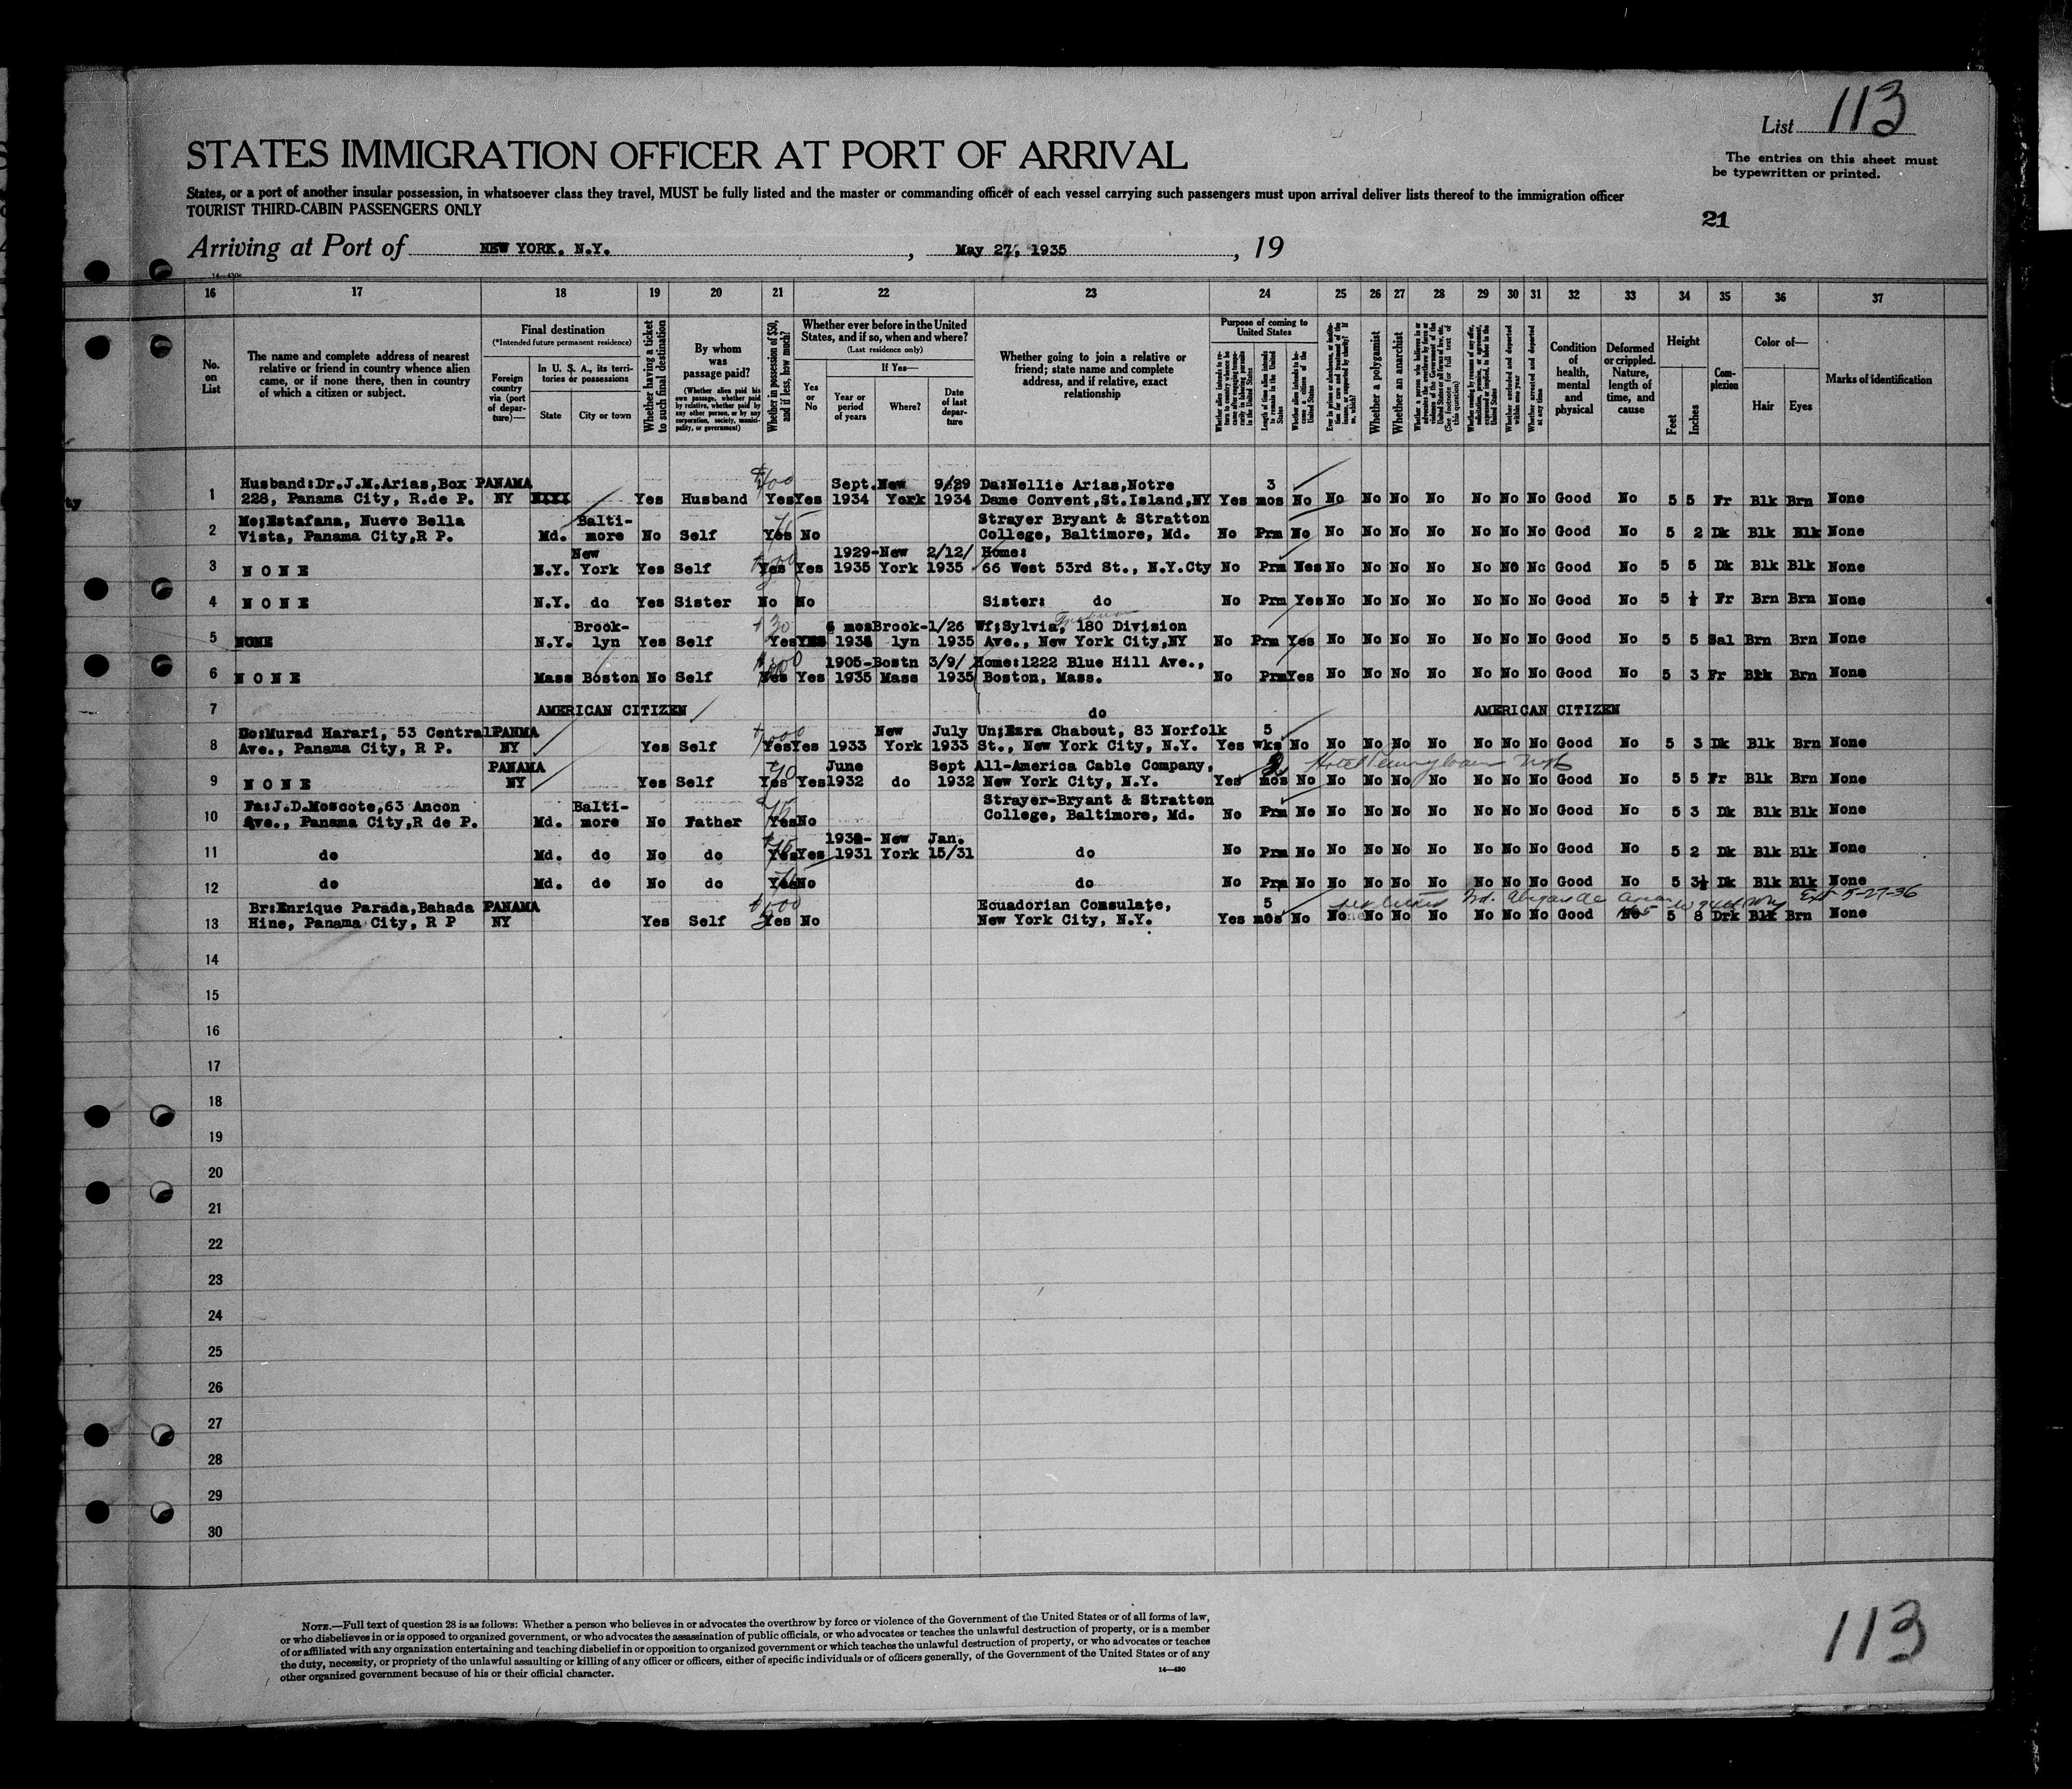 List 113
STATES IMMIGRATION OFFICER AT PORT OF ARRIVAL
The entries on this sheet must
be typewritten or printed.
States, or a port of another insular possession, in whatsoever class they travel, MUST be fully listed and the master or commanding officer of each vessel carrying such passengers must upon arrival deliver lists thereof to the immigration officer
TOURIST THIRD-CABIN PASSENGERS ONLY
21
Arriving at Port of NEW YORK, N.Y. , May 27, 1935 , 19
16 17 18 19 20 21 22 23 24 25 26 27 28 29 30 31 32 33 34 35 36 37
No. on List
The name and complete address of nearest relative or friend in country whence alien came, or if none there, then in country of which a citizen or subject.
Final destination
(*Intended future permanent residence)
Foreign country via (port of departure)—
In U. S. A., its territories or possessions
State
City or town
Whether having a ticket to such final destination
By whom was passage paid?
(Whether alien paid his own passage, whether paid by relative, whether paid by any other person, or by any corporation, society, municipality, or government)
Whether in possession of $50, and if less, how much?
Whether ever before in the United States, and if so, when and where?
(Last residence only)
Yes or No
If Yes—
Year or period of years
Where?
Date of last departure
Whether going to join a relative or friend; state name and complete address, and if relative, exact relationship
Purpose of coming to United States
Whether a polygamist
Whether an anarchist
Condition of health, mental and physical
Deformed or crippled. Nature, length of time, and cause
Height
Feet
Inches
Complexion
Color of—
Hair
Eyes
Marks of identification
Husband:Dr.J.M.Arias,Box PANAMA $400 Sept. New 9/29 Da:Nellie Arias,Notre 3
1 228, Panama City, R.de P. NY Yes Husband Yes Yes 1934 York 1934 Dame Convent,St.Island,NY Yes mos No No No No No No No No Good No 5 5 Fr Blk Brn None
Mo:Estafana, Nuevo Bella Balti- 75 Strayer Bryant & Stratton
2 Vista, Panama City,R P. Md. more No Self Yes No College, Baltimore, Md. No Prm No No No No No No No No Good No 5 2 Dk Blk Blk None
New 1929- New 2/12/ Home:
3 NONE N.Y. York Yes Self Yes Yes 1935 York 1935 66 West 53rd St., N.Y.Cty No Prm Yes No No No No No No No Good No 5 5 Dk Blk Blk None
4 NONE N.Y. do Yes Sister No No Sister: do No Prm Yes No No No No No No No Good No 5 ½ Fr Brn Brn None
Brook- 30 6 mos Brook- 1/26 Wf:Sylvia, 180 Division
5 NONE N.Y. lyn Yes Self Yes YES lyn 1935 Ave., New York City,NY No Prm Yes No No No No No No No Good No 5 5 Sal Brn Brn None
1905- Bostn 3/9/ Home:1222 Blue Hill Ave.,
6 NONE Mass Boston No Self Yes Yes 1935 Mass 1935 Boston, Mass. No Prm Yes No No No No No No No Good No 5 3 Fr Blk Brn None
7 AMERICAN CITIZEN do AMERICAN CITIZEN
Murad Harari, 53 Central PANMA New July Un:Ezra Chabout, 83 Norfolk 5
8 Ave., Panama City, R P. NY Yes Self Yes Yes 1933 York 1933 St., New York City, N.Y. Yes wks No No No No No No No No Good No 5 3 Dk Blk Brn None
PANAMA 40 June Sept All-America Cable Company, 2 Hotel Pennsylvania
9 NONE NY Yes Self Yes Yes 1932 do 1932 New York City, N.Y. Yes mos No No No No No No No No Good No 5 5 Fr Blk Brn None
Fa:J.D.Moscote,63 Ancon Balti- 75 Strayer-Bryant & Stratton
10 Ave., Panama City,R de P. Md. more No Father Yes No College, Baltimore, Md. No Prm No No No No No No No No Good No 5 3 Dk Blk Blk None
New Jan.
11 do Md. do No do Yes Yes 1931 York 15/31 do No Prm No No No No No No No No Good No 5 2 Dk Blk Blk None
12 do Md. do No do Yes No do No Prm No No No No No No No No Good No 5 3½ Dk Blk Blk None
Br:Enrique Parada,Bahada PANAMA Ecuadorian Consulate, 5 Ext 5-27-36
13 Hine, Panama City, R P NY Yes Self Yes No New York City, N.Y. Yes mos No No No No No No No No Good No 5 8 Drk Blk Brn None
14
15
16
17
18
19
20
21
22
23
24
25
26
27
28
29
30
NOTE.—Full text of question 28 is as follows: Whether a person who believes in or advocates the overthrow by force or violence of the Government of the United States or of all forms of law,
or who disbelieves in or is opposed to organized government, or who advocates the assassination of public officials, or who advocates or teaches the unlawful destruction of property, or is a member
of or affiliated with any organization entertaining and teaching disbelief in or opposition to organized government or which teaches the unlawful destruction of property, or who advocates or teaches
the duty, necessity, or propriety of the unlawful assaulting or killing of any officer or officers, either of specific individuals or of officers generally, of the Government of the United States or of any
other organized government because of his or their official character.
14—430
113